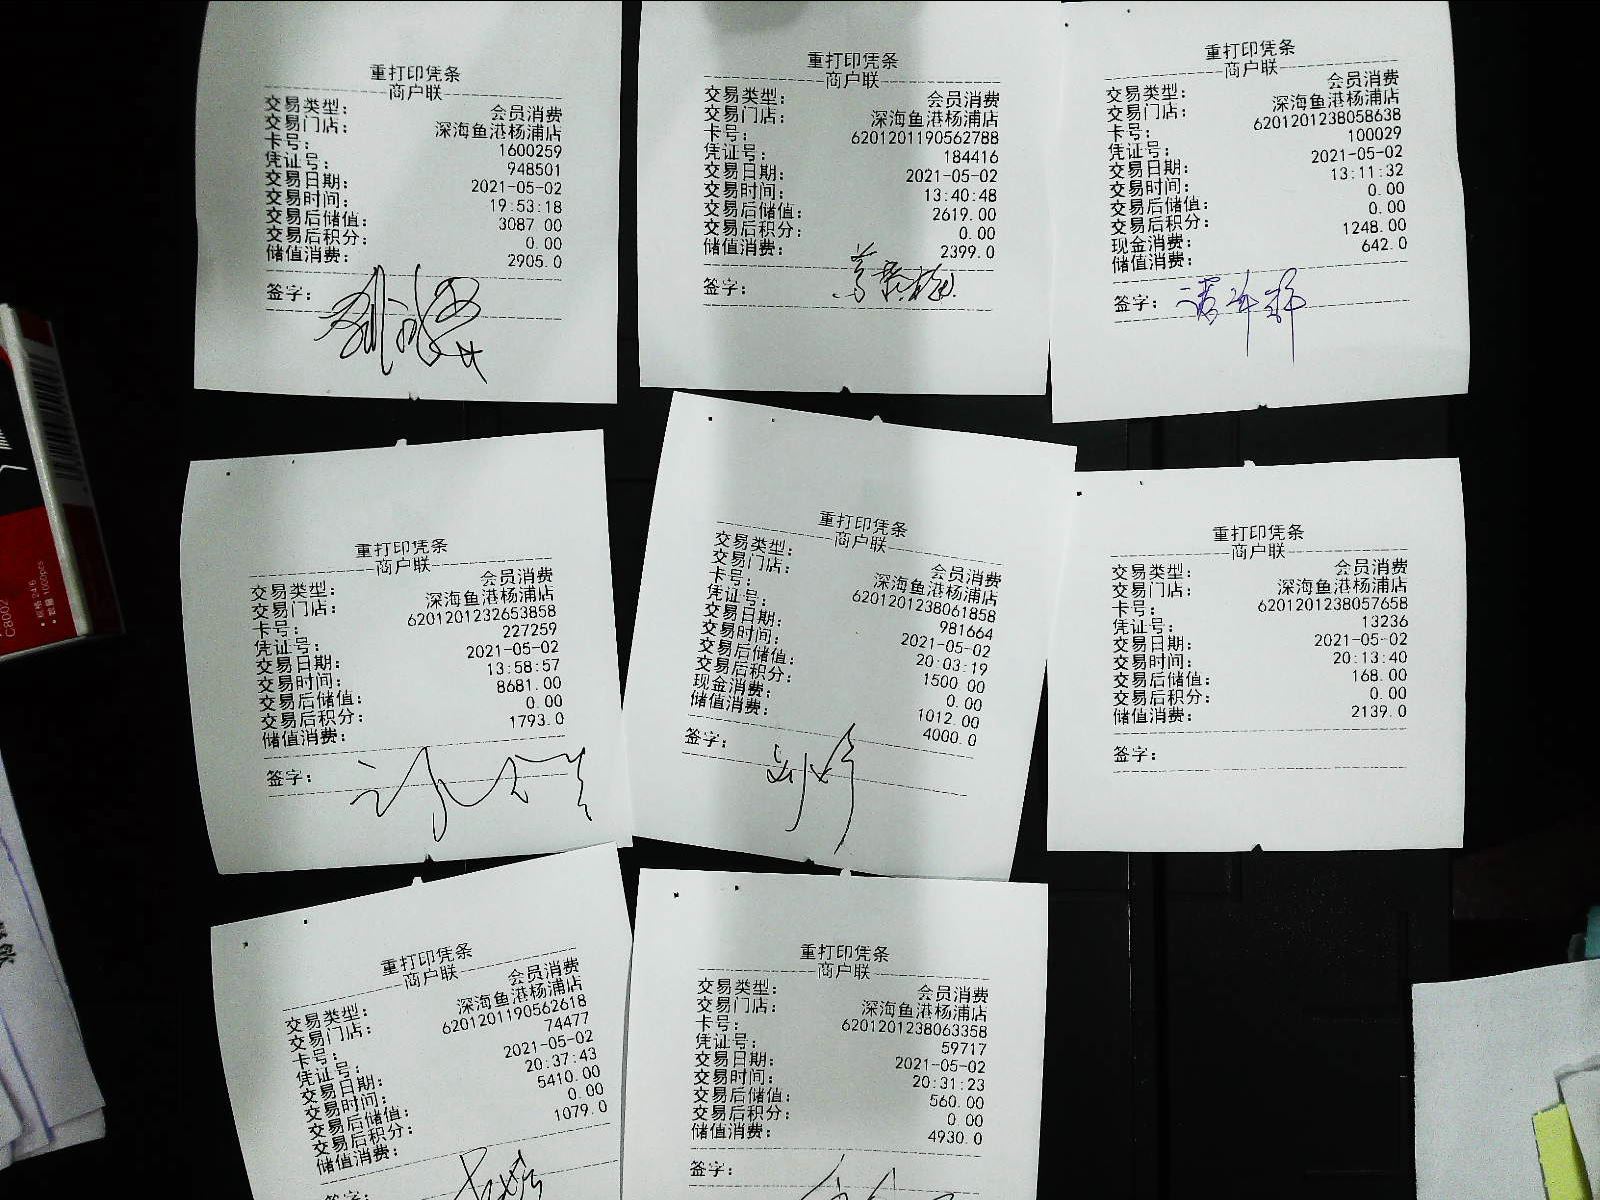 重打印凭条
商户联
交易类型: 会员消费
交易门店: 深海鱼港杨浦店
卡号: 1600259
凭证号: 948501
交易日期: 2021-05-02
交易时间: 19:53:18
交易后储值: 3087.00
交易后积分: 0.00
储值消费: 2905.0
签字:
重打印凭条
商户联
交易类型: 会员消费
交易门店: 深海鱼港杨浦店
卡号: 6201201190562788
凭证号: 184416
交易日期: 2021-05-02
交易时间: 13:40:48
交易后储值: 2619.00
交易后积分: 0.00
储值消费: 2399.0
签字:
重打印凭条
商户联
交易类型: 会员消费
交易门店: 深海鱼港杨浦店
卡号: 6201201238058638
凭证号: 100029
交易日期: 2021-05-02
交易时间: 13:11:32
交易后储值: 0.00
交易后积分: 0.00
现金消费: 1248.00
储值消费: 642.0
签字:
重打印凭条
商户联
交易类型: 会员消费
交易门店: 深海鱼港杨浦店
卡号: 6201201232653858
凭证号: 227259
交易日期: 2021-05-02
交易时间: 13:58:57
交易后储值: 8681.00
交易后积分: 0.00
储值消费: 1793.0
签字:
重打印凭条
商户联
交易类型: 会员消费
交易门店: 深海鱼港杨浦店
卡号: 6201201238061858
凭证号: 981664
交易日期: 2021-05-02
交易时间: 20:03:19
交易后储值: 1500.00
交易后积分: 0.00
现金消费: 1012.00
储值消费: 4000.0
签字:
重打印凭条
商户联
交易类型: 会员消费
交易门店: 深海鱼港杨浦店
卡号: 6201201238057658
凭证号: 13236
交易日期: 2021-05-02
交易时间: 20:13:40
交易后储值: 168.00
交易后积分: 0.00
储值消费: 2139.0
签字:
重打印凭条
商户联
交易类型: 会员消费
交易门店: 深海鱼港杨浦店
卡号: 6201201190562618
凭证号: 74477
交易日期: 2021-05-02
交易时间: 20:37:43
交易后储值: 5410.00
交易后积分: 0.00
储值消费: 1079.0
签字:
重打印凭条
商户联
交易类型: 会员消费
交易门店: 深海鱼港杨浦店
卡号: 6201201238063358
凭证号: 59717
交易日期: 2021-05-02
交易时间: 20:31:23
交易后储值: 560.00
交易后积分: 0.00
储值消费: 4930.0
签字:
C8002